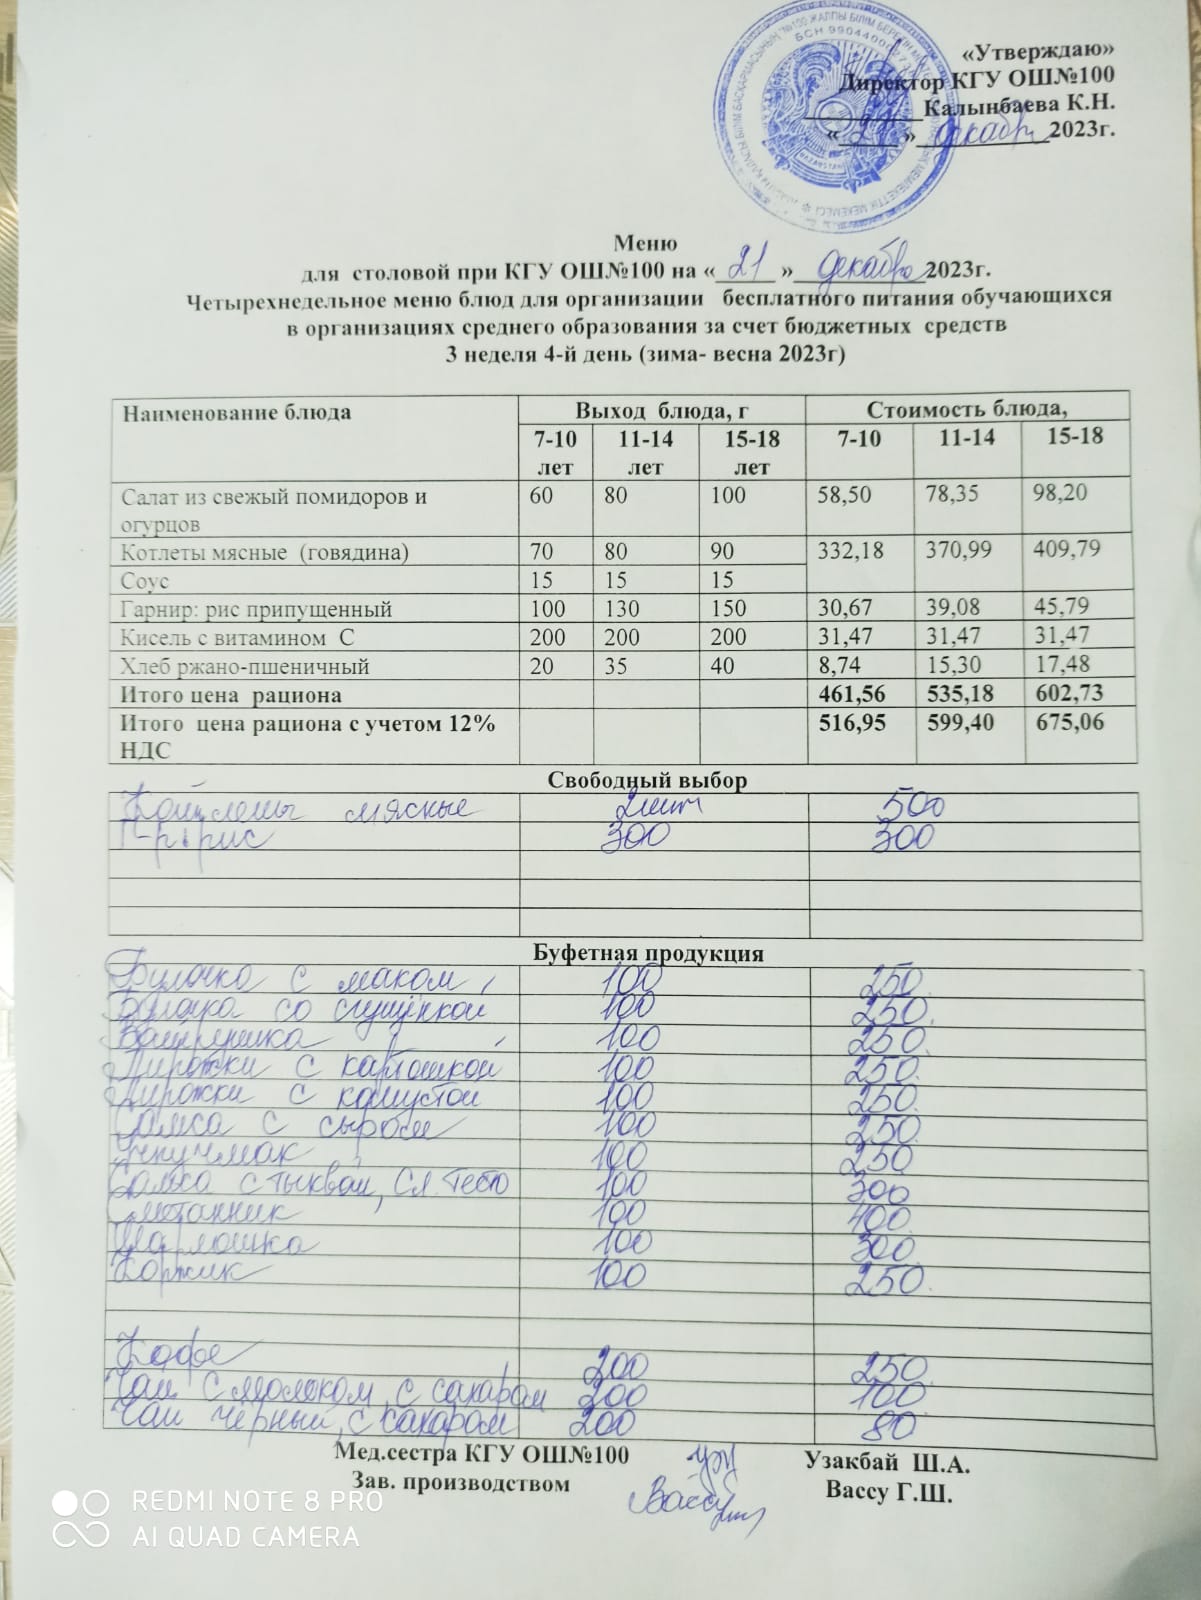 «Утверждаю»
Директор КГУ ОШ№100
Калынбаева К.Н.
«21» декабря 2023г.
Меню
для столовой при КГУ ОШ№100 на «21» декабря 2023г.
Четырехнедельное меню блюд для организации бесплатного питания обучающихся
в организациях среднего образования за счет бюджетных средств
3 неделя 4-й день (зима- весна 2023г)
Наименование блюда Выход блюда, г Стоимость блюда,
7-10 лет 11-14 лет 15-18 лет 7-10 11-14 15-18
Салат из свежый помидоров и огурцов 60 80 100 58,50 78,35 98,20
Котлеты мясные (говядина) 70 80 90 332,18 370,99 409,79
Соус 15 15 15
Гарнир: рис припущенный 100 130 150 30,67 39,08 45,79
Кисель с витамином С 200 200 200 31,47 31,47 31,47
Хлеб ржано-пшеничный 20 35 40 8,74 15,30 17,48
Итого цена рациона 461,56 535,18 602,73
Итого цена рациона с учетом 12% НДС 516,95 599,40 675,06
Свободный выбор
Котлеты мясные 2шт 500
Г-р: рис 300 300
Буфетная продукция
Булочка с маком 100 250
Булочка со сгущенкой 100 250
Ватрушка 100 250
Пирожки с картошкой 100 250
Пирожки с капустой 100 250
Самса с сыром 100 250
Учпучмак 100 250
Самса с тыквой, Сл. тесто 100 300
Сметанник 100 400
100 300
Коржик 100 250
Кофе 200 250
Чай с молоком, с сахаром 200 100
Чай черный, с сахаром 200 80
Мед.сестра КГУ ОШ№100 Узакбай Ш.А.
Зав. производством Вассу Г.Ш.
REDMI NOTE 8 PRO
AI QUAD CAMERA